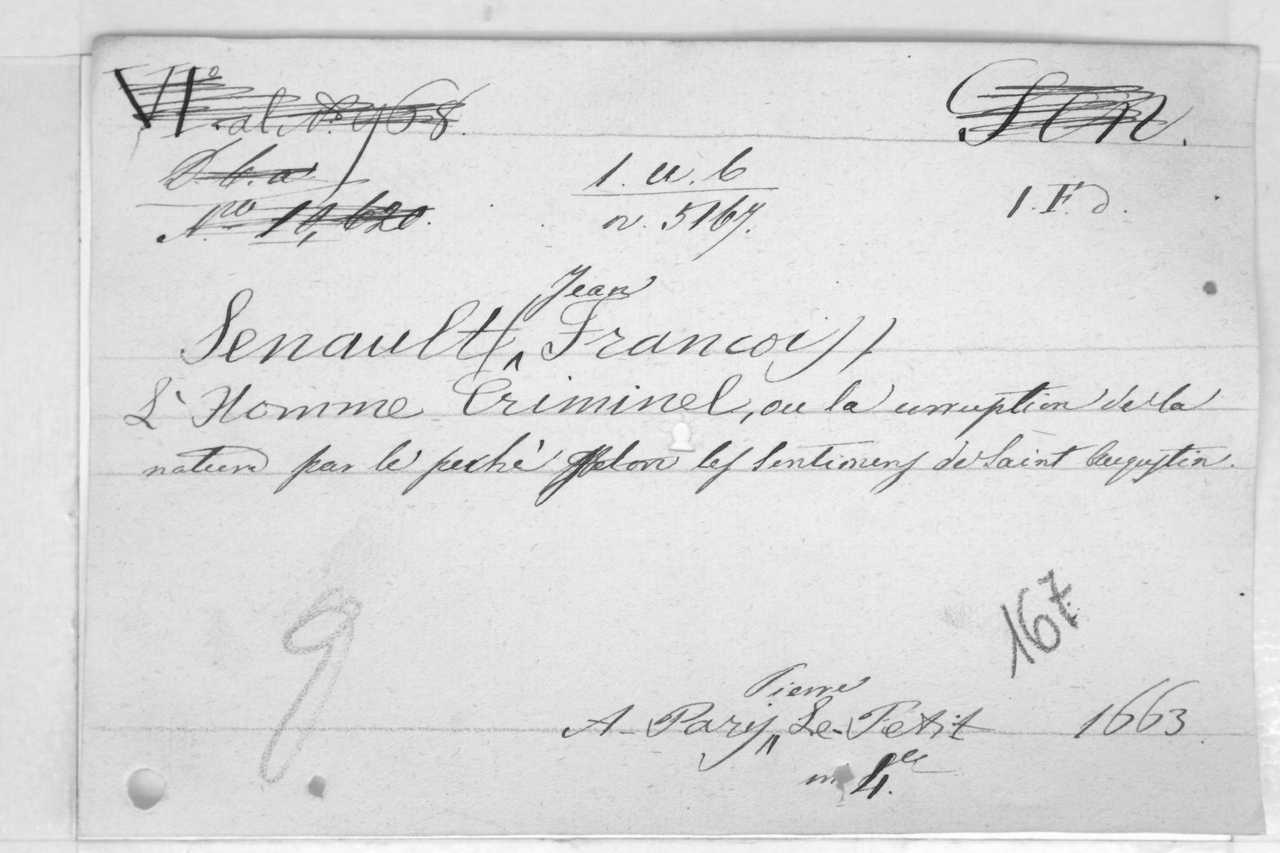 1. u. b
n. 5167.
1. F. d.
Senault (Jean Francois)
L'Homme Criminel, ou la corruption de la
nature par le peché selon les sentimens de Saint Augustin.
167
9
A Paris, Pierre Le Petit 1663
in 4.